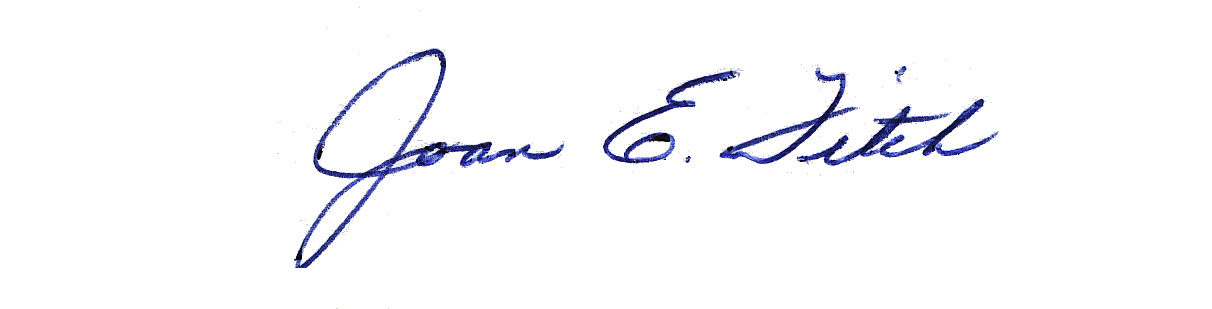 Joan E. Fitch